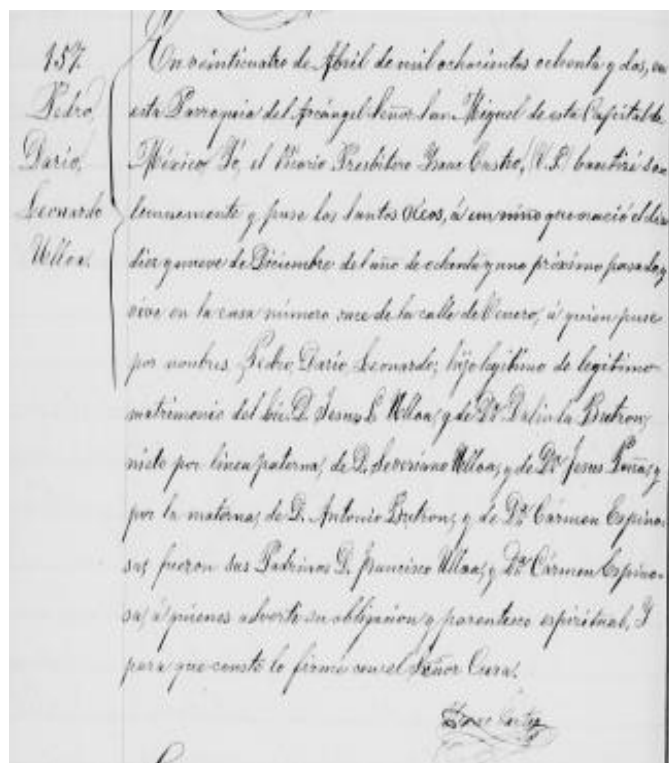 157
Pedro,
Dario,
Leonardo
Ulloa.
En veinticuatro de Abril de mil ochocientos ochenta y dos, en
esta Parroquia del Arcángel Señor San Miguel de esta Capital de
México, Yó, el Vicario Presbitero Isaac Castro, (V.P.) bautizé so-
lemnemente y puse los Santos Oleos, á un niño que nació el dia
diez y nueve de Diciembre del año de ochenta y uno próximo pasado, y
vive en la casa número once de la calle de Venero, á quien puse
por nombres Pedro, Dario, Leonardo; hijo legítimo de legítimo
matrimonio del Lic. D. Jesus L. Ulloa, y de Dª Dalinda Butron;
nieto por linea paterna, de D. Severiano Ulloa, y de Dª Jesus Peña, y
por la materna, de D. Antonio Butron, y de Dª Cármen Espino-
sa, fueron sus Padrinos D. Francisco Ulloa, y Dª Cármen Espino-
sa, á quienes advertí su obligacion y parentesco espiritual. Y
para que conste lo firmé con el Señor Cura.